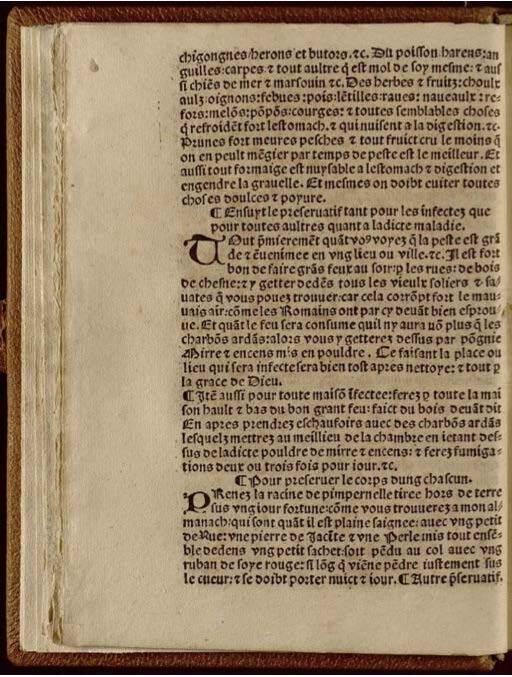 chigongnes/herons et butors.⁊c. Du poisson harens:an
guilles:carpes ⁊ tout aultre q̃ est mol de soy mesme: ⁊ aus
si chiẽs de mer ⁊ marsouin ⁊c. Des herbes ⁊ fruitz:choulx
aulz:oignons:febues :pois:lẽtilles:raues: naueaulx : re-
fors:melõs:põpõs:courges: ⁊ toutes semblables choses
q̃ refroidẽt fort lestomach.⁊ qui nuisent a la digestion.⁊c.
Prunes fort meures pesches ⁊ tout fruict cru le moins q̃
on en peult mẽgier par temps de peste est le meilleur. Et
aussi tout formaige est nuysable a lestomach ⁊ digestion et
engendre la grauelle. Et mesmes on doibt euiter toutes
choses doulces ⁊ poyure.
¶ Ensuyt le preseruatif tant pour les infectez que
pour toutes aultres quant a ladicte maladie.
TOut p̃mierement quãt voꝰ voyez q̃ la peste est grã
de ⁊ ẽuenimee en vng lieu ou ville.⁊c. Il est fort
bon de faire grãs feux au soir:ꝑ les rues: de bois
de chesne:⁊ y getter dedẽs tous les vieulx soliers ⁊ sa/
uates q̃ vous pouez trouuer:car cela corrõpt fort le mau-
uais air:cõme les Romains ont par cy deuãt bien esprou/
ue. Et quãt le feu sera consume quil ny aura nõ plus q̃ les
charbõs ardãs:alors vous y getterez dessus par põgnie
Mirre ⁊ encens mis en pouldre . Ce faisant la place ou
lieu qui sera infecte sera bien tost apres nettoye: ⁊ tout ꝑ
la grace de Dieu.
¶ Itẽ aussi pour toute maisõ ĩfectee:ferez ꝑ toute la mai
son hault ⁊ bas du bon grant feu: faict du bois deuãt dit
En apres prendrez eschaufoirs auec des charbõs ardãs
lesquelz mettrez au meillieu de la chambre en ietant des-
sus de ladicte pouldre de mirre ⁊ encens: ⁊ ferez fumiga-
tions deux ou trois fois pour iour.⁊c.
¶ Pour preseruer le corps dung chascun.
PRenez la racine de pimpernelle tiree hors de terre
sus vng iour fortune:cõme vous trouuerez a mon al/
manach:qui sont quãt il est plaine saignee: auec vng petit
de Rue: vne pierre de Jacĩte ⁊ vne Perle mis tout ensẽ-
ble dedens vng petit sachet:soit pẽdu au col auec vng
ruban de soye rouge: si lõg q̃ viẽne pẽdre iustement sus
le cueur:⁊ se doibt porter nuict ⁊ iour. ¶ Autre p̃seruatif.